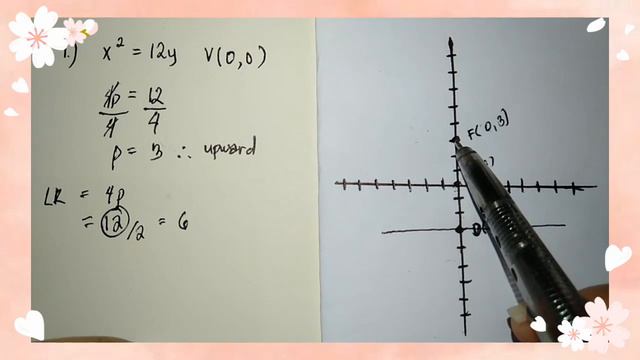 1.) x² = 12y V(0,0)
4p = 12
4 4
p = 3 ∴ upward
LR = 4p
= 12 /2 = 6
F(0,3)